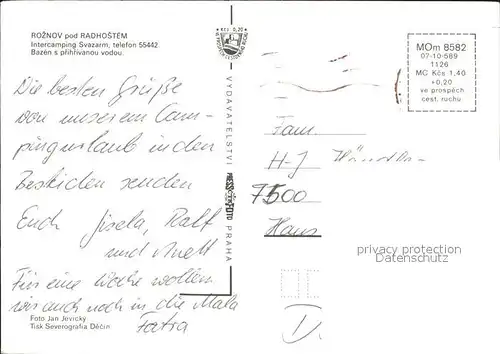 ROŽNOV pod RADHOŠTĚM
Intercamping Svazarm, telefon 55442
Bazén s přihřívanou vodou.
Die besten Grüße
von unserem Cam-
pingurlaub in den
Beskiden senden
Euch Gisela, Ralf
und Anett
Für eine Woche wollen
wir auch noch in die Mala
Fatra
Foto Jan Jevický
Tisk Severografia Děčín
Kčs 0,20
VYDAVATELSTVÍ
PRESSFOTO
PRAHA
MOm 8582
07-10-589
1126
MC Kčs 1,40
+0,20
ve prospěch
cest. ruchu
Fam.
H-J
7500
privacy protection
Datenschutz
D